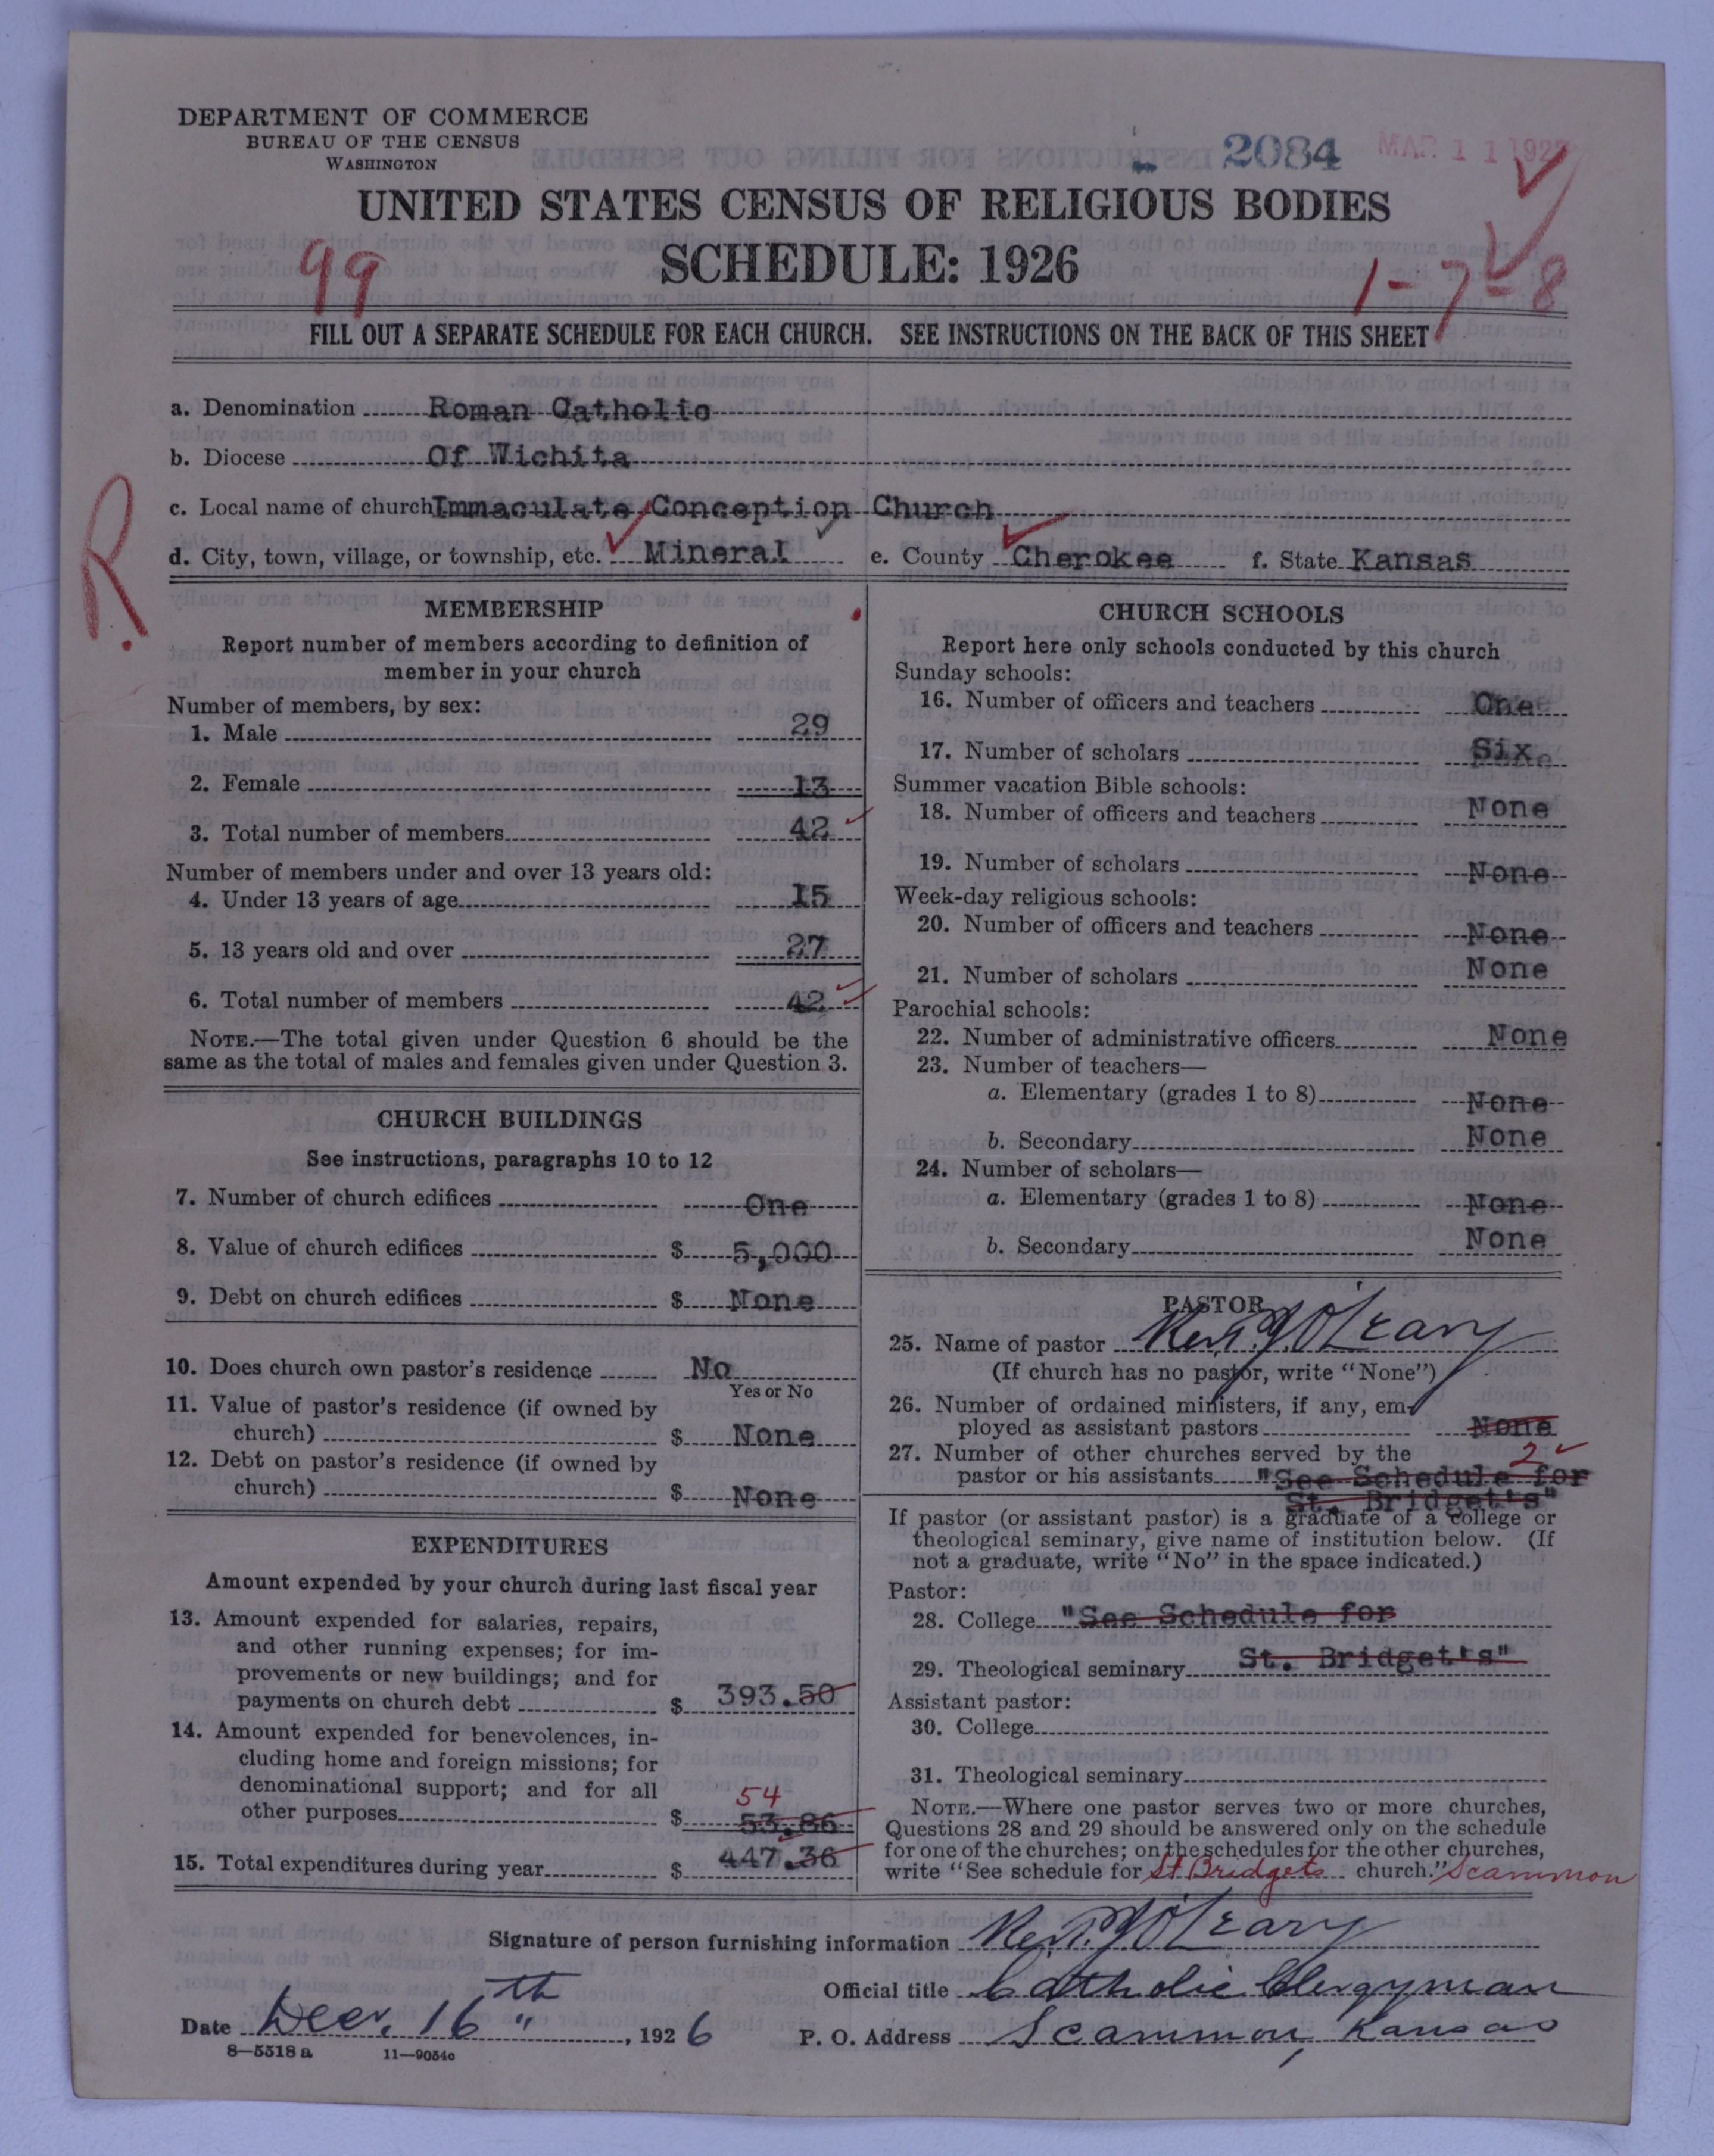 DEPARTMENT OF COMMERCE
BUREAU OF THE CENSUS
WASHINGTON
2084 MAR 11 1927
UNITED STATES CENSUS OF RELIGIOUS BODIES
SCHEDULE: 1926
99
1-7-8
FILL OUT A SEPARATE SCHEDULE FOR EACH CHURCH. SEE INSTRUCTIONS ON THE BACK OF THIS SHEET
a. Denomination Roman Catholic
b. Diocese Of Wichita
c. Local name of church Immaculate Conception Church
d. City, town, village, or township, etc. Mineral e. County Cherokee f. State Kansas
R.
MEMBERSHIP
Report number of members according to definition of
member in your church
Number of members, by sex:
1. Male 29
2. Female 13
3. Total number of members 42
Number of members under and over 13 years old:
4. Under 13 years of age 15
5. 13 years old and over 27
6. Total number of members 42
NOTE.—The total given under Question 6 should be the
same as the total of males and females given under Question 3.
CHURCH BUILDINGS
See instructions, paragraphs 10 to 12
7. Number of church edifices One
8. Value of church edifices $ 5,000
9. Debt on church edifices $ None
10. Does church own pastor's residence No
Yes or No
11. Value of pastor's residence (if owned by
church) $ None
12. Debt on pastor's residence (if owned by
church) $ None
EXPENDITURES
Amount expended by your church during last fiscal year
13. Amount expended for salaries, repairs,
and other running expenses; for im-
provements or new buildings; and for
payments on church debt $ 393.50
14. Amount expended for benevolences, in-
cluding home and foreign missions; for
denominational support; and for all
54
other purposes $ 53.86
15. Total expenditures during year $ 447.36
CHURCH SCHOOLS
Report here only schools conducted by this church
Sunday schools:
16. Number of officers and teachers One
17. Number of scholars Six
Summer vacation Bible schools:
18. Number of officers and teachers None
19. Number of scholars None
Week-day religious schools:
20. Number of officers and teachers None
21. Number of scholars None
Parochial schools:
22. Number of administrative officers None
23. Number of teachers—
a. Elementary (grades 1 to 8) None
b. Secondary None
24. Number of scholars—
a. Elementary (grades 1 to 8) None
b. Secondary None
PASTOR
25. Name of pastor Rev. J. O'Leary
(If church has no pastor, write "None")
26. Number of ordained ministers, if any, em-
ployed as assistant pastors None
27. Number of other churches served by the 2
pastor or his assistants "See Schedule for
St. Bridgett's"
If pastor (or assistant pastor) is a graduate of a college or
theological seminary, give name of institution below. (If
not a graduate, write "No" in the space indicated.)
Pastor:
28. College "See Schedule for
29. Theological seminary St. Bridgett's"
Assistant pastor:
30. College
31. Theological seminary
NOTE.—Where one pastor serves two or more churches,
Questions 28 and 29 should be answered only on the schedule
for one of the churches; on the schedules for the other churches,
write "See schedule for St Bridgets church." Scammon
Signature of person furnishing information Rev. J. O'Leary
Official title Catholic Clergyman
Date Decr. 16th, 1926 P. O. Address Scammon, Kansas
8—5518 a 11—9054c